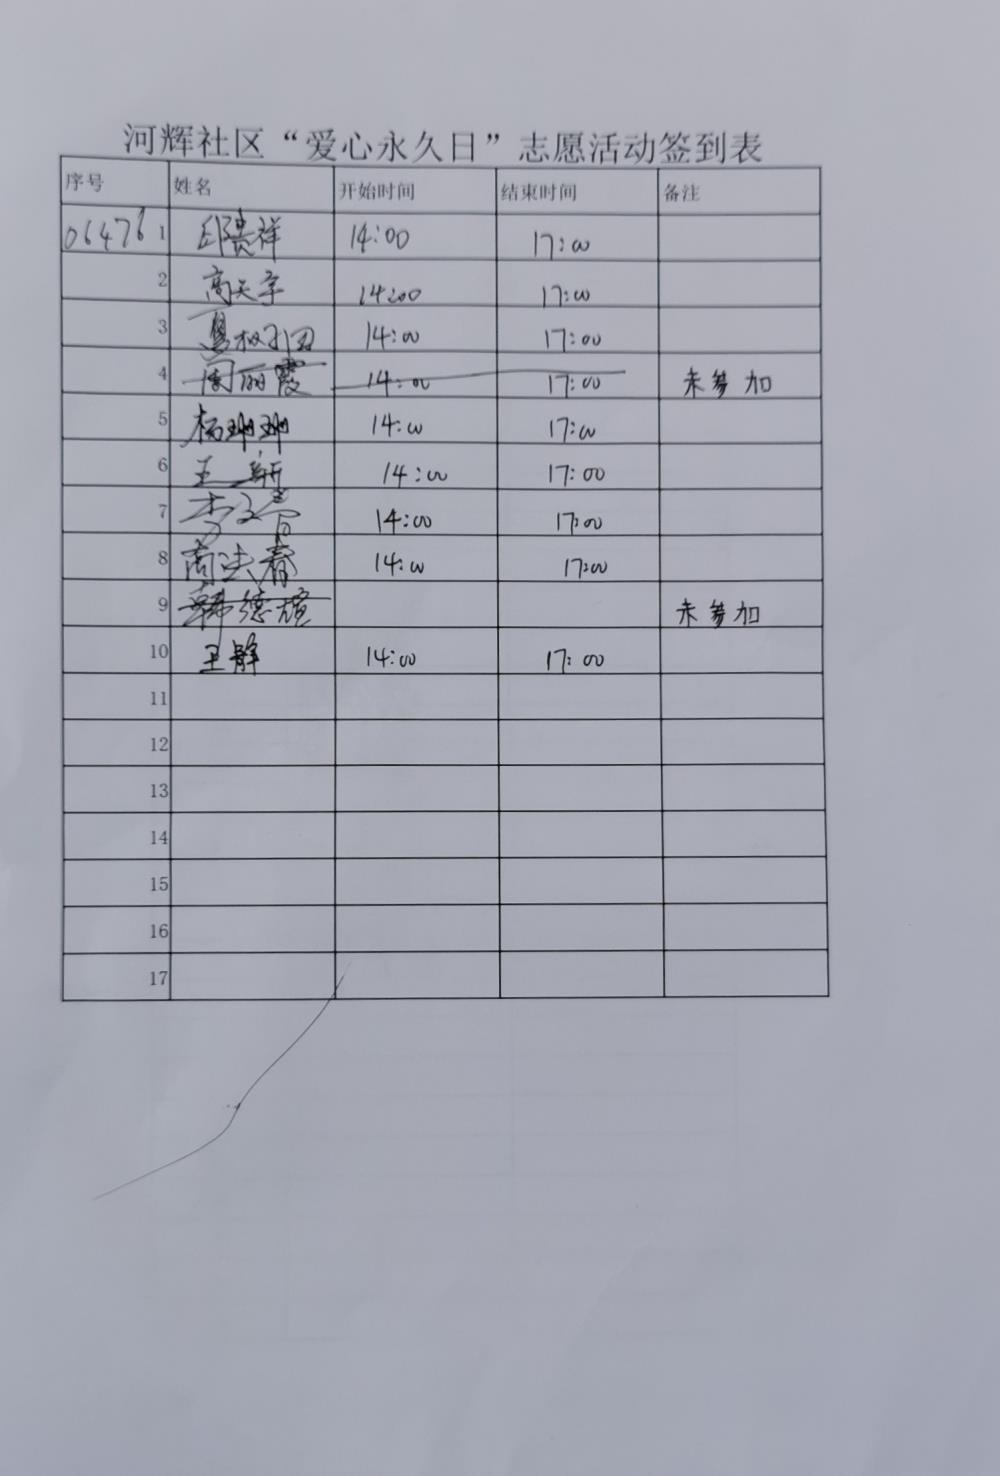 河辉社区“爱心永久日”志愿活动签到表
序号 姓名 开始时间 结束时间 备注
06476 1 邱贵祥 14:00 17:00
2 高天宇 14:00 17:00
3 14:00 17:00
4 周丽霞 14:00 17:00 未参加
5 杨珊珊 14:00 17:00
6 王 14:00 17:00
7 李文 14:00 17:00
8 高法春 14:00 17:00
9 韩德煊 未参加
10 王静 14:00 17:00
11
12
13
14
15
16
17